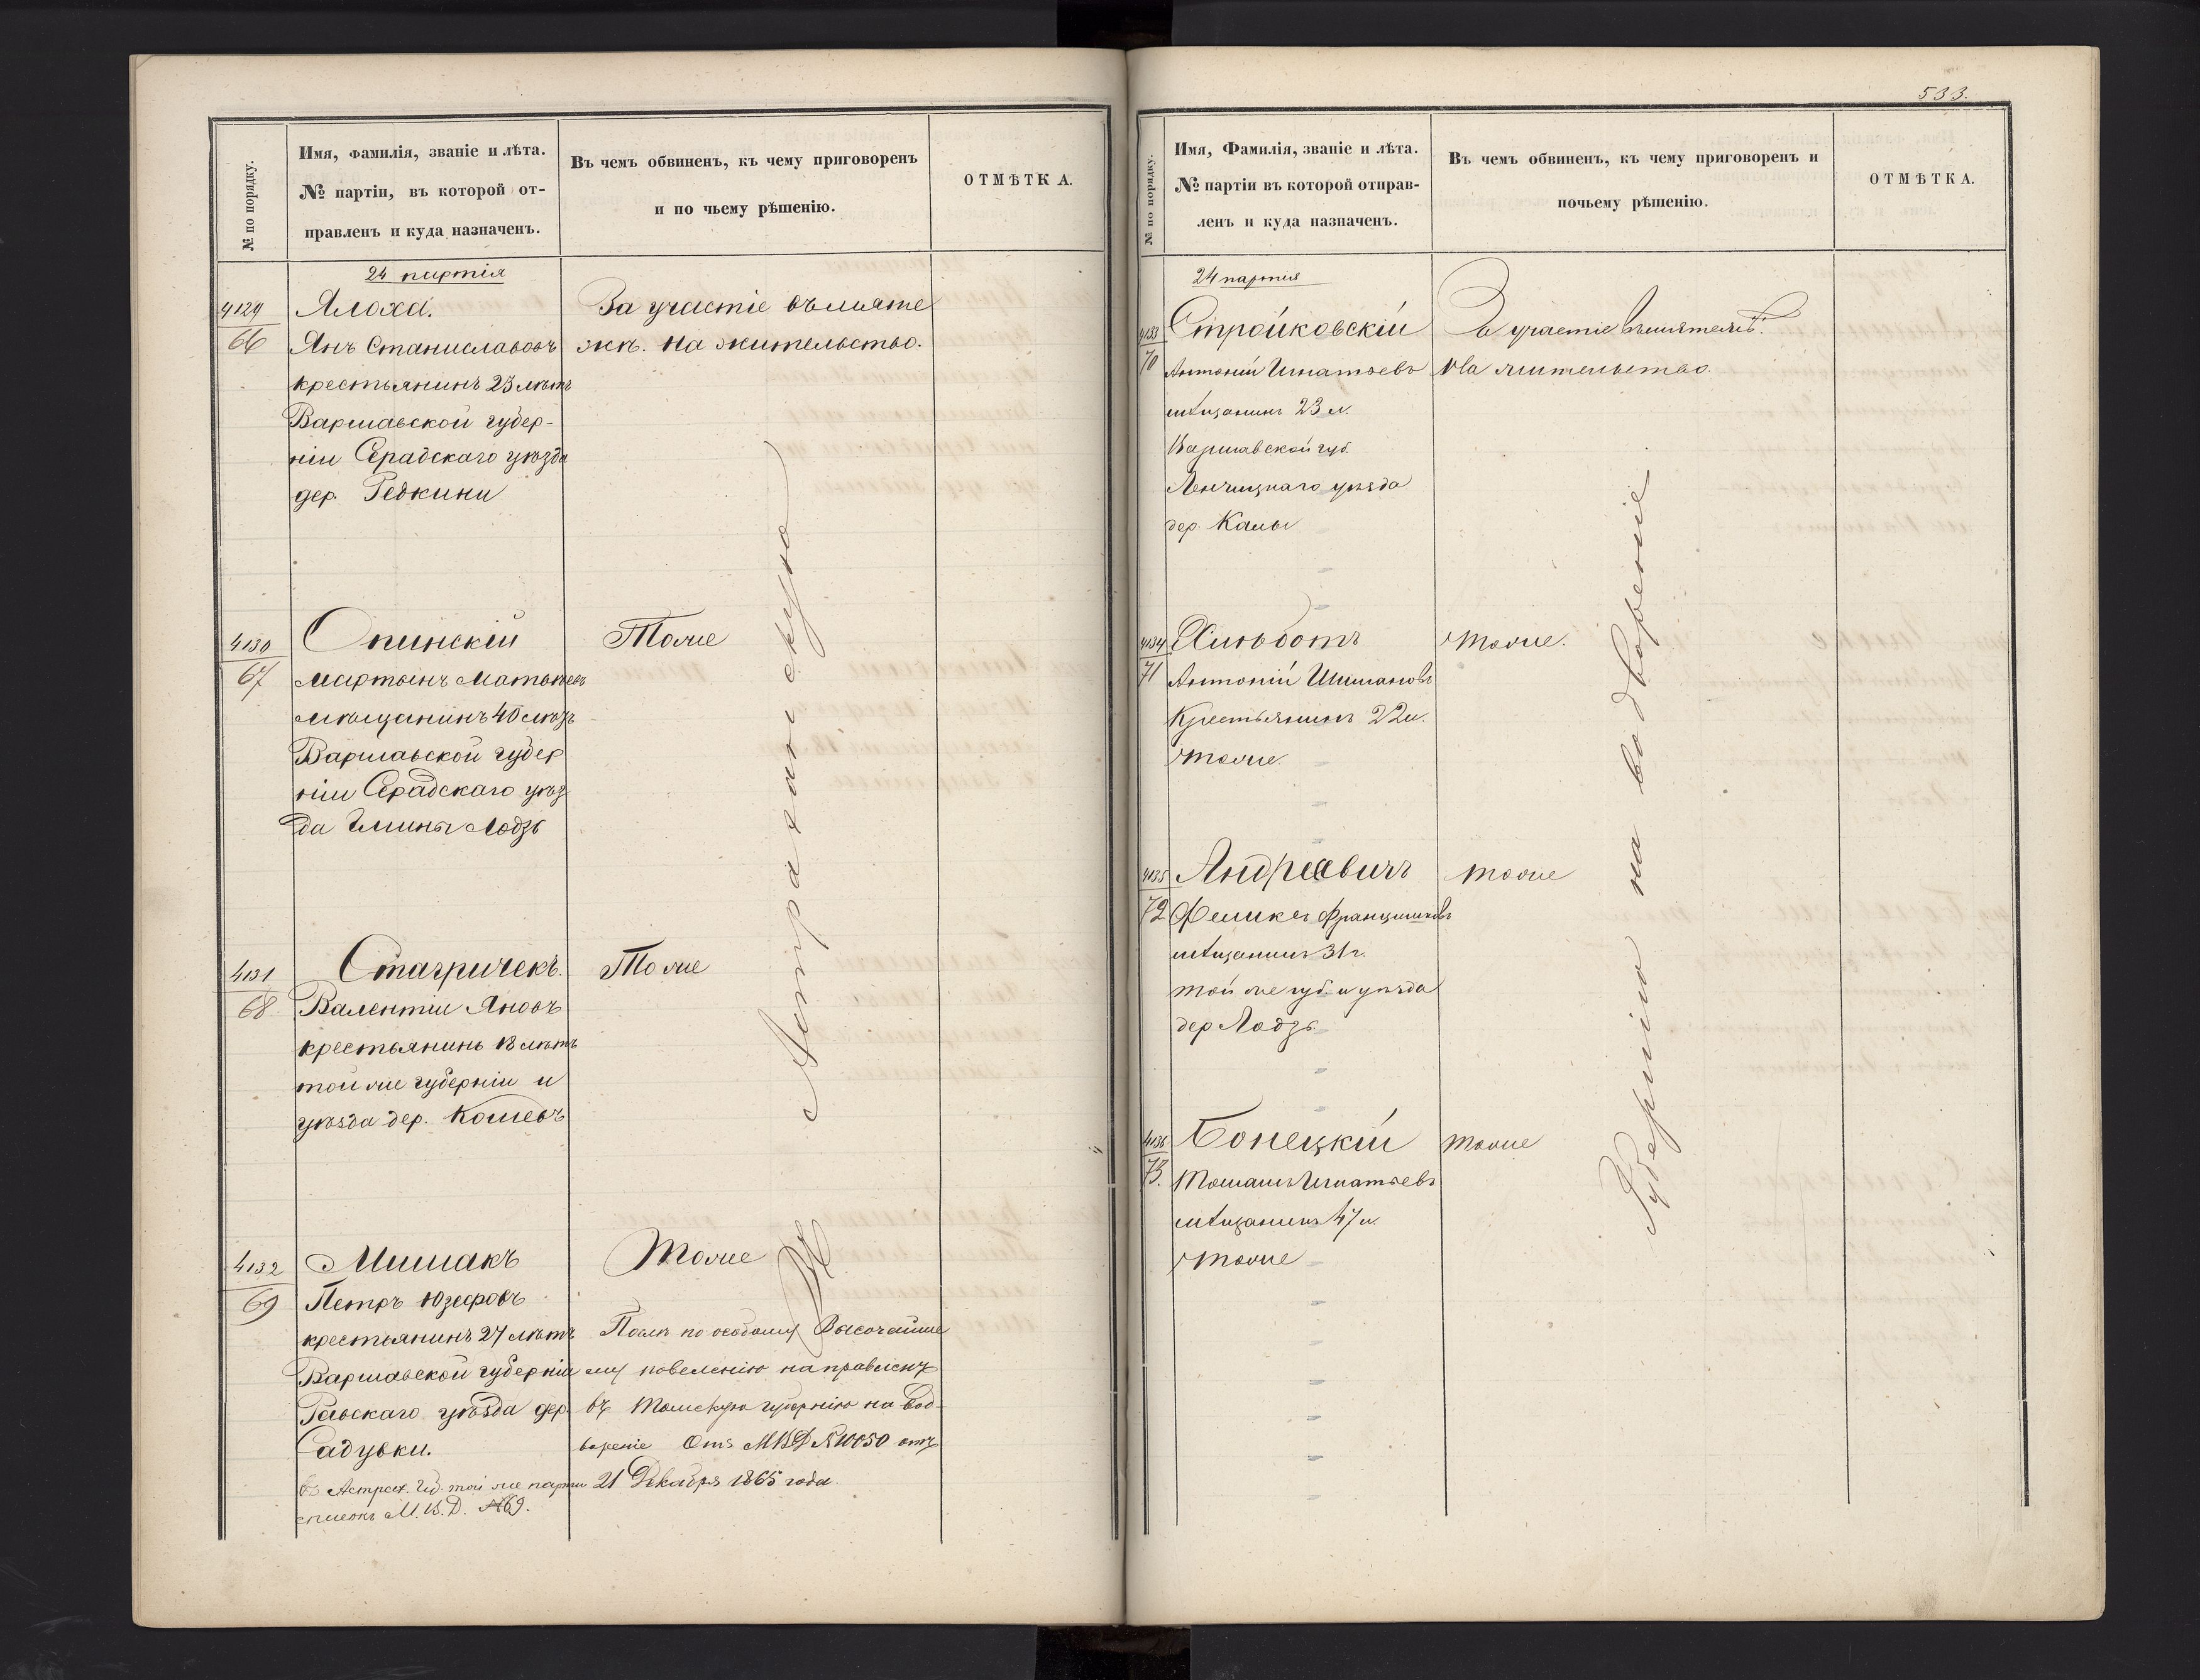 № по порядку.
Имя, фамилія, званіе и лѣта.
№ партіи, въ которой от-
правленъ и куда назначенъ.
Въ чемъ обвиненъ, къ чему приговоренъ
и по чьему рѣшенію.
ОТМѢТКА.
24 партія
4129
66
Ялоха.
Янъ Станиславовъ
крестьянинъ 23 лѣтъ
Варшавской губер-
ніи Серадскаго уѣзда
дер.
За участіе въ мяте
жѣ. На жительство.
4130
67
Опинскій
Мартынъ Матвѣевъ
мѣщанинъ 40 лѣтъ
Варшавской губер
ніи Серадскаго уѣз
да Гмины Лодзь
Тоже
4131
68
Стагричекъ.
Валентій Яновъ
крестьянинъ 18 лѣтъ
той же губерніи и
уѣзда дер.
Тоже
4132
69
Мишакъ
Петръ Юзефовъ
крестьянинъ 27 лѣтъ
Варшавской губерніи
Равскаго уѣзда дер.
Садувки.
въ Астрах. губ. той же партіи
списокъ М.В.Д. №69.
Тоже
Полякъ по особому Высочайше
му повелѣнію направленъ
въ Томскую губернію на вод-
вореніе Отз МВД №10050 отъ
21 Декабря 1865 года.
Астраханскую
533.
№ по порядку.
Имя, Фамилія, званіе и лѣта.
№ партіи въ которой отправ-
ленъ и куда назначенъ.
Въ чемъ обвиненъ, къ чему приговоренъ и
почьему рѣшенію.
ОТМѢТКА.
24 партія
4133
70
Стройковскій
Антоній Игнатьевъ
мѣщанинъ 23 л.
Варшавской губ.
Ленчицкаго уѣзда
дер. Калы
За участіе въ мятежѣ.
На жительство.
4134
71
Антоній Шимановъ
Крестьянинъ 22 л.
тоже.
тоже.
4135
72
Андреевичъ
Феликсъ Францишковъ
мѣщанинъ 31 г.
той же губ. и уѣзда
дер Лодзь.
тоже
4136
73.
Бонецкій
Томашъ Игнатьевъ
мѣщанинъ 47 л.
тоже
тоже
Губернію на водвореніе